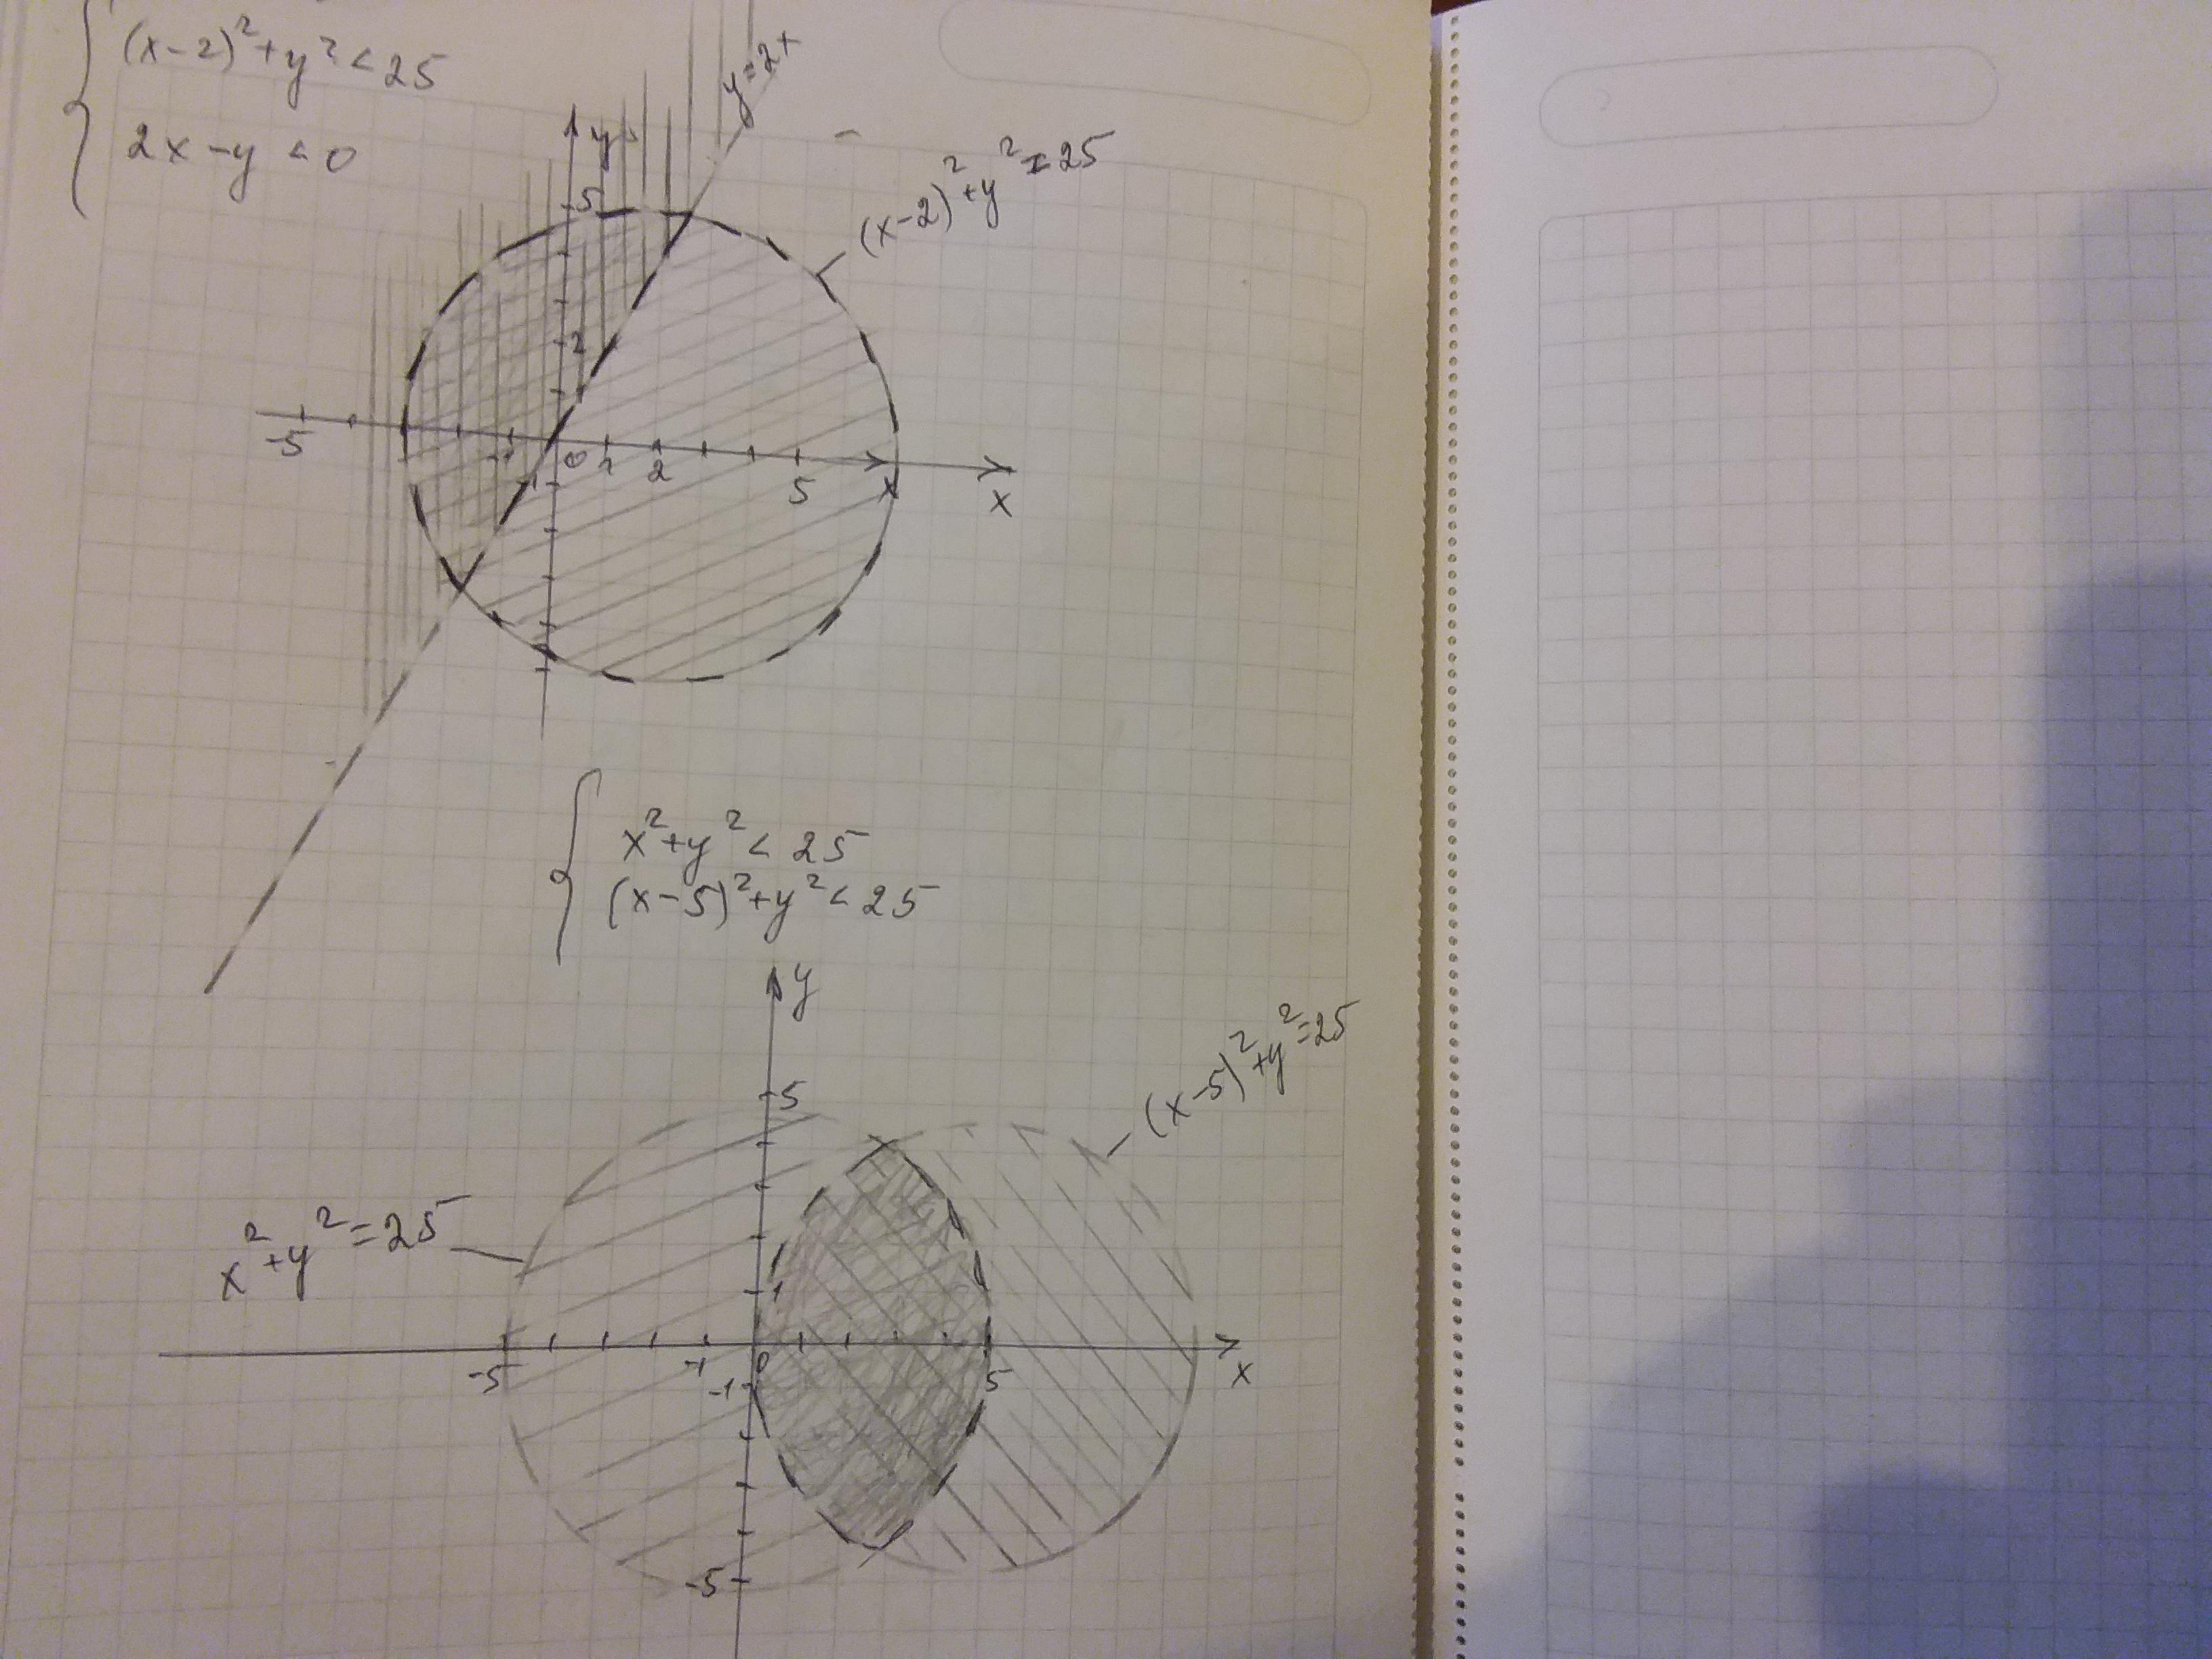 (x-2)²+y²<25
2x-y<0
y=2x
y
(x-2)²+y²=25
5
2
-5 -1 0 1 2 5 x x
-1
{ x²+y²<25
(x-5)²+y²<25
y
(x-5)²+y²=25
5
x²+y²=25
1
-5 -1 0 5 x
-1
-5